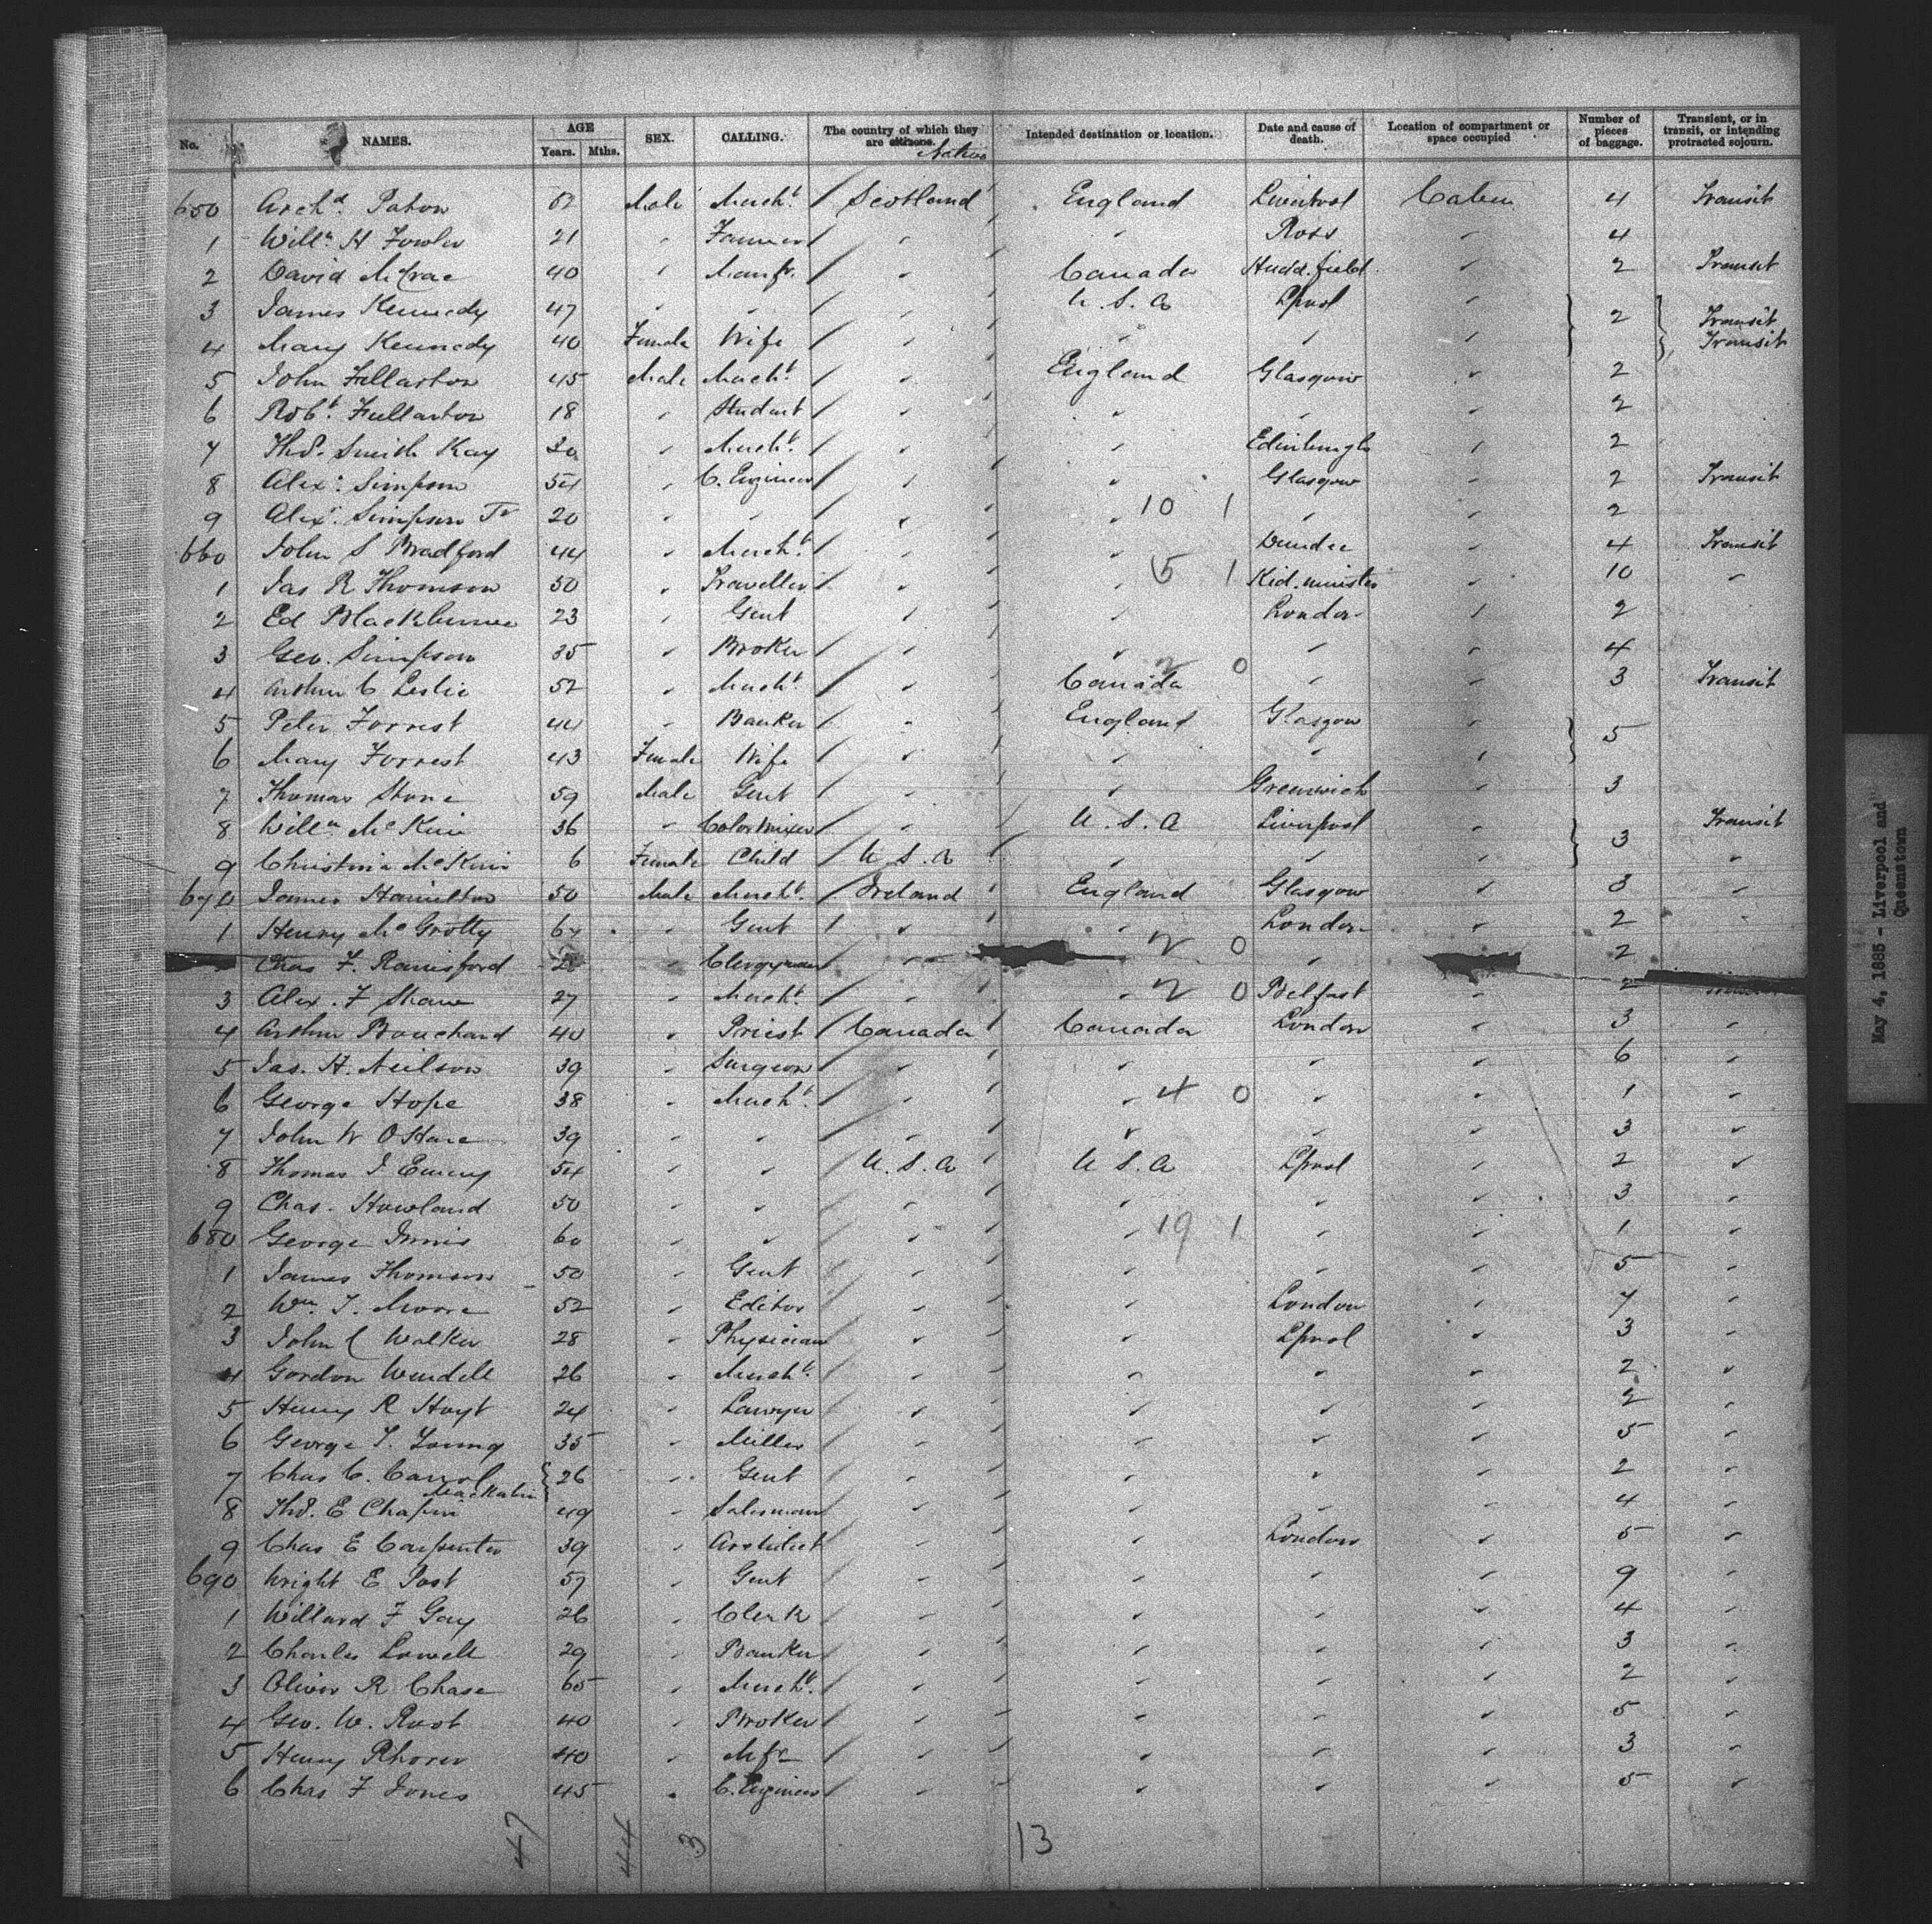 No. NAMES. AGE Years. Mths. SEX. CALLING. The country of which they are citizens. Native Intended destination or location. Date and cause of death. Location of compartment or space occupied Number of pieces of baggage. Transient, or in transit, or intending protracted sojourn.
650 Archd. Paton 62 Male Mercht. Scotland England Liverpool Cabin 4 Transit
1 Willm H Fowler 21 " Farmer " " Ross " 4
2 David McCrae 40 " Manfr. " Canada Hudd.field " 2 Transit
3 James Kennedy 47 " " " U.S.A Lpool " 2 Transit
4 Mary Kennedy 40 Female Wife " " " " Transit
5 John Fullarton 45 Male Mercht. " England Glasgow " 2
6 Robt. Fullarton 18 " Student " " " " 2
7 Thos. Smith Kay 30 " Mercht. " " Edinburgh " 2
8 Alexr. Simpson 54 " C. Engineer " " Glasgow " 2 Transit
9 Alexr. Simpson Jr 20 " " " " 10 1 " " 2
660 John S Bradford 44 " Mercht. " " Dundee " 4 Transit
1 Jas R Thomson 50 " Traveller " " 5 1 Kid.minster " 10 "
2 Ed Blackburne 23 " Gent " " London " 2
3 Geo. Simpson 35 " Broker " " " " 4
4 Arthur C Leslie 52 " Mercht. " Canada 2 0 " " 3 Transit
5 Peter Forrest 44 " Banker " England Glasgow " 5
6 Mary Forrest 43 Female Wife " " " "
7 Thomas Stone 59 Male Gent " " Greenwich " 3
8 Willm McKini 36 " Color mixer " U.S.A Liverpool " 3 Transit
9 Christina McKini 6 Female Child U.S.A " " " "
670 James Hamilton 50 Male Mercht. Ireland England Glasgow " 3 "
1 Henry McGrotty 67 " Gent " " London " 2 "
Chas F. Rainsford " Clergyman " " 2 0 " 2
3 Alex. F Shaw 27 " Mercht. " " 2 0 Belfast " 2
4 Arthur Bouchard 40 " Priest Canada Canada London " 3 "
5 Jas. H. Neilson 39 " Surgeon " " " " 6 "
6 George Hope 38 " Mercht. " " 4 0 " " 1 "
7 John W O'Hara 39 " " " " " " 3 "
8 Thomas J. Emery 54 " " U.S.A U.S.A Lpool " 2 "
9 Chas. Howland 50 " " " " " " 3 "
680 George Innis 60 " " " " 19 1 " " 1 "
1 James Thomson 50 " Gent " " " " 5 "
2 Wm T. Moore 52 " Editor " " London " 7 "
3 John C Walker 28 " Physician " " Lpool " 3 "
4 Gordon Wendell 26 " Mercht. " " " " 2 "
5 Henry R Hoyt 24 " Lawyer " " " " 2 "
6 George T. Young 35 " Miller " " " " 5 "
7 Chas C. Carrol 26 " Gent " " " " 2 "
8 Thos. E Chapin 49 " Salesman " " " " 4 "
9 Chas E Carpenter 39 " Architect " " London " 5 "
690 Wright E Post 57 " Gent " " " " 9 "
1 Willard F Gay 26 " Clerk " " " " 4 "
2 Charles Lowell 29 " Banker " " " " 3 "
3 Oliver R Chase 65 " Mercht. " " " " 2 "
4 Geo. W. Root 40 " Broker " " " " 5 "
5 Henry Rhorer 40 " Mfr " " " " 3 "
6 Chas F Jones 45 " C. Engineer " " " " 5 "
47 44 3 13
May 4, 1885 - Liverpool and Queenstown